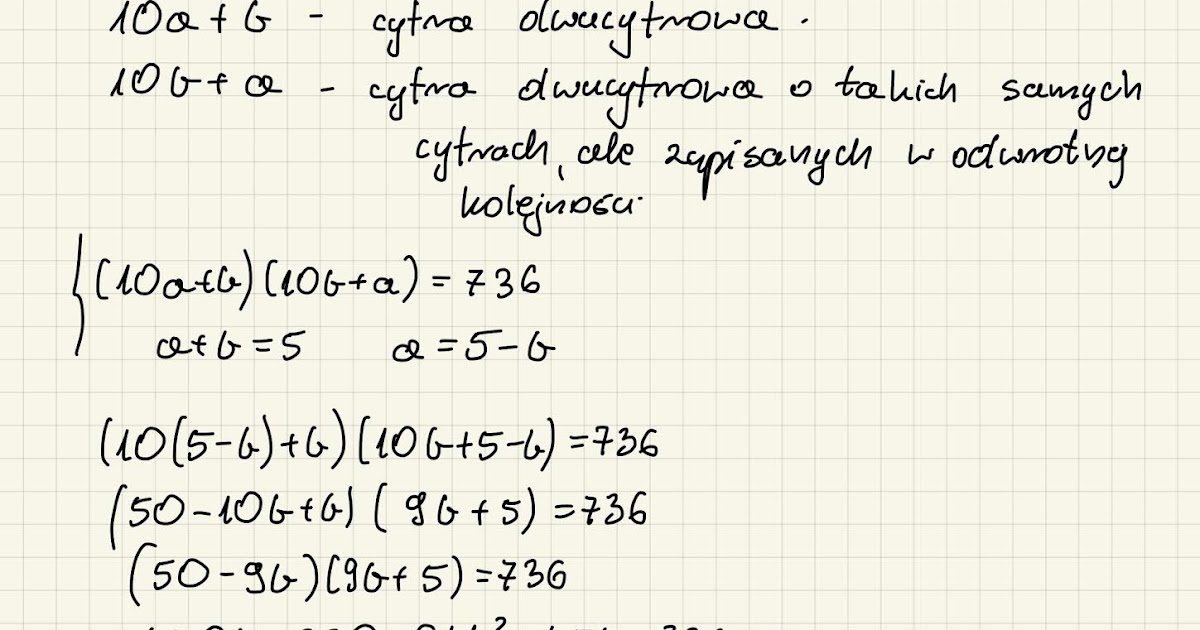 10a+b - cyfra dwucyfrowa.
10b+a - cyfra dwucyfrowa o takich samych
cyfrach, ale zapisanych w odwrotnej
kolejności.
(10a+b)(10b+a) = 736
a+b=5 a=5-b
(10(5-b)+b)(10b+5-b)=736
(50-10b+b)(9b+5)=736
(50-9b)(9b+5)=736